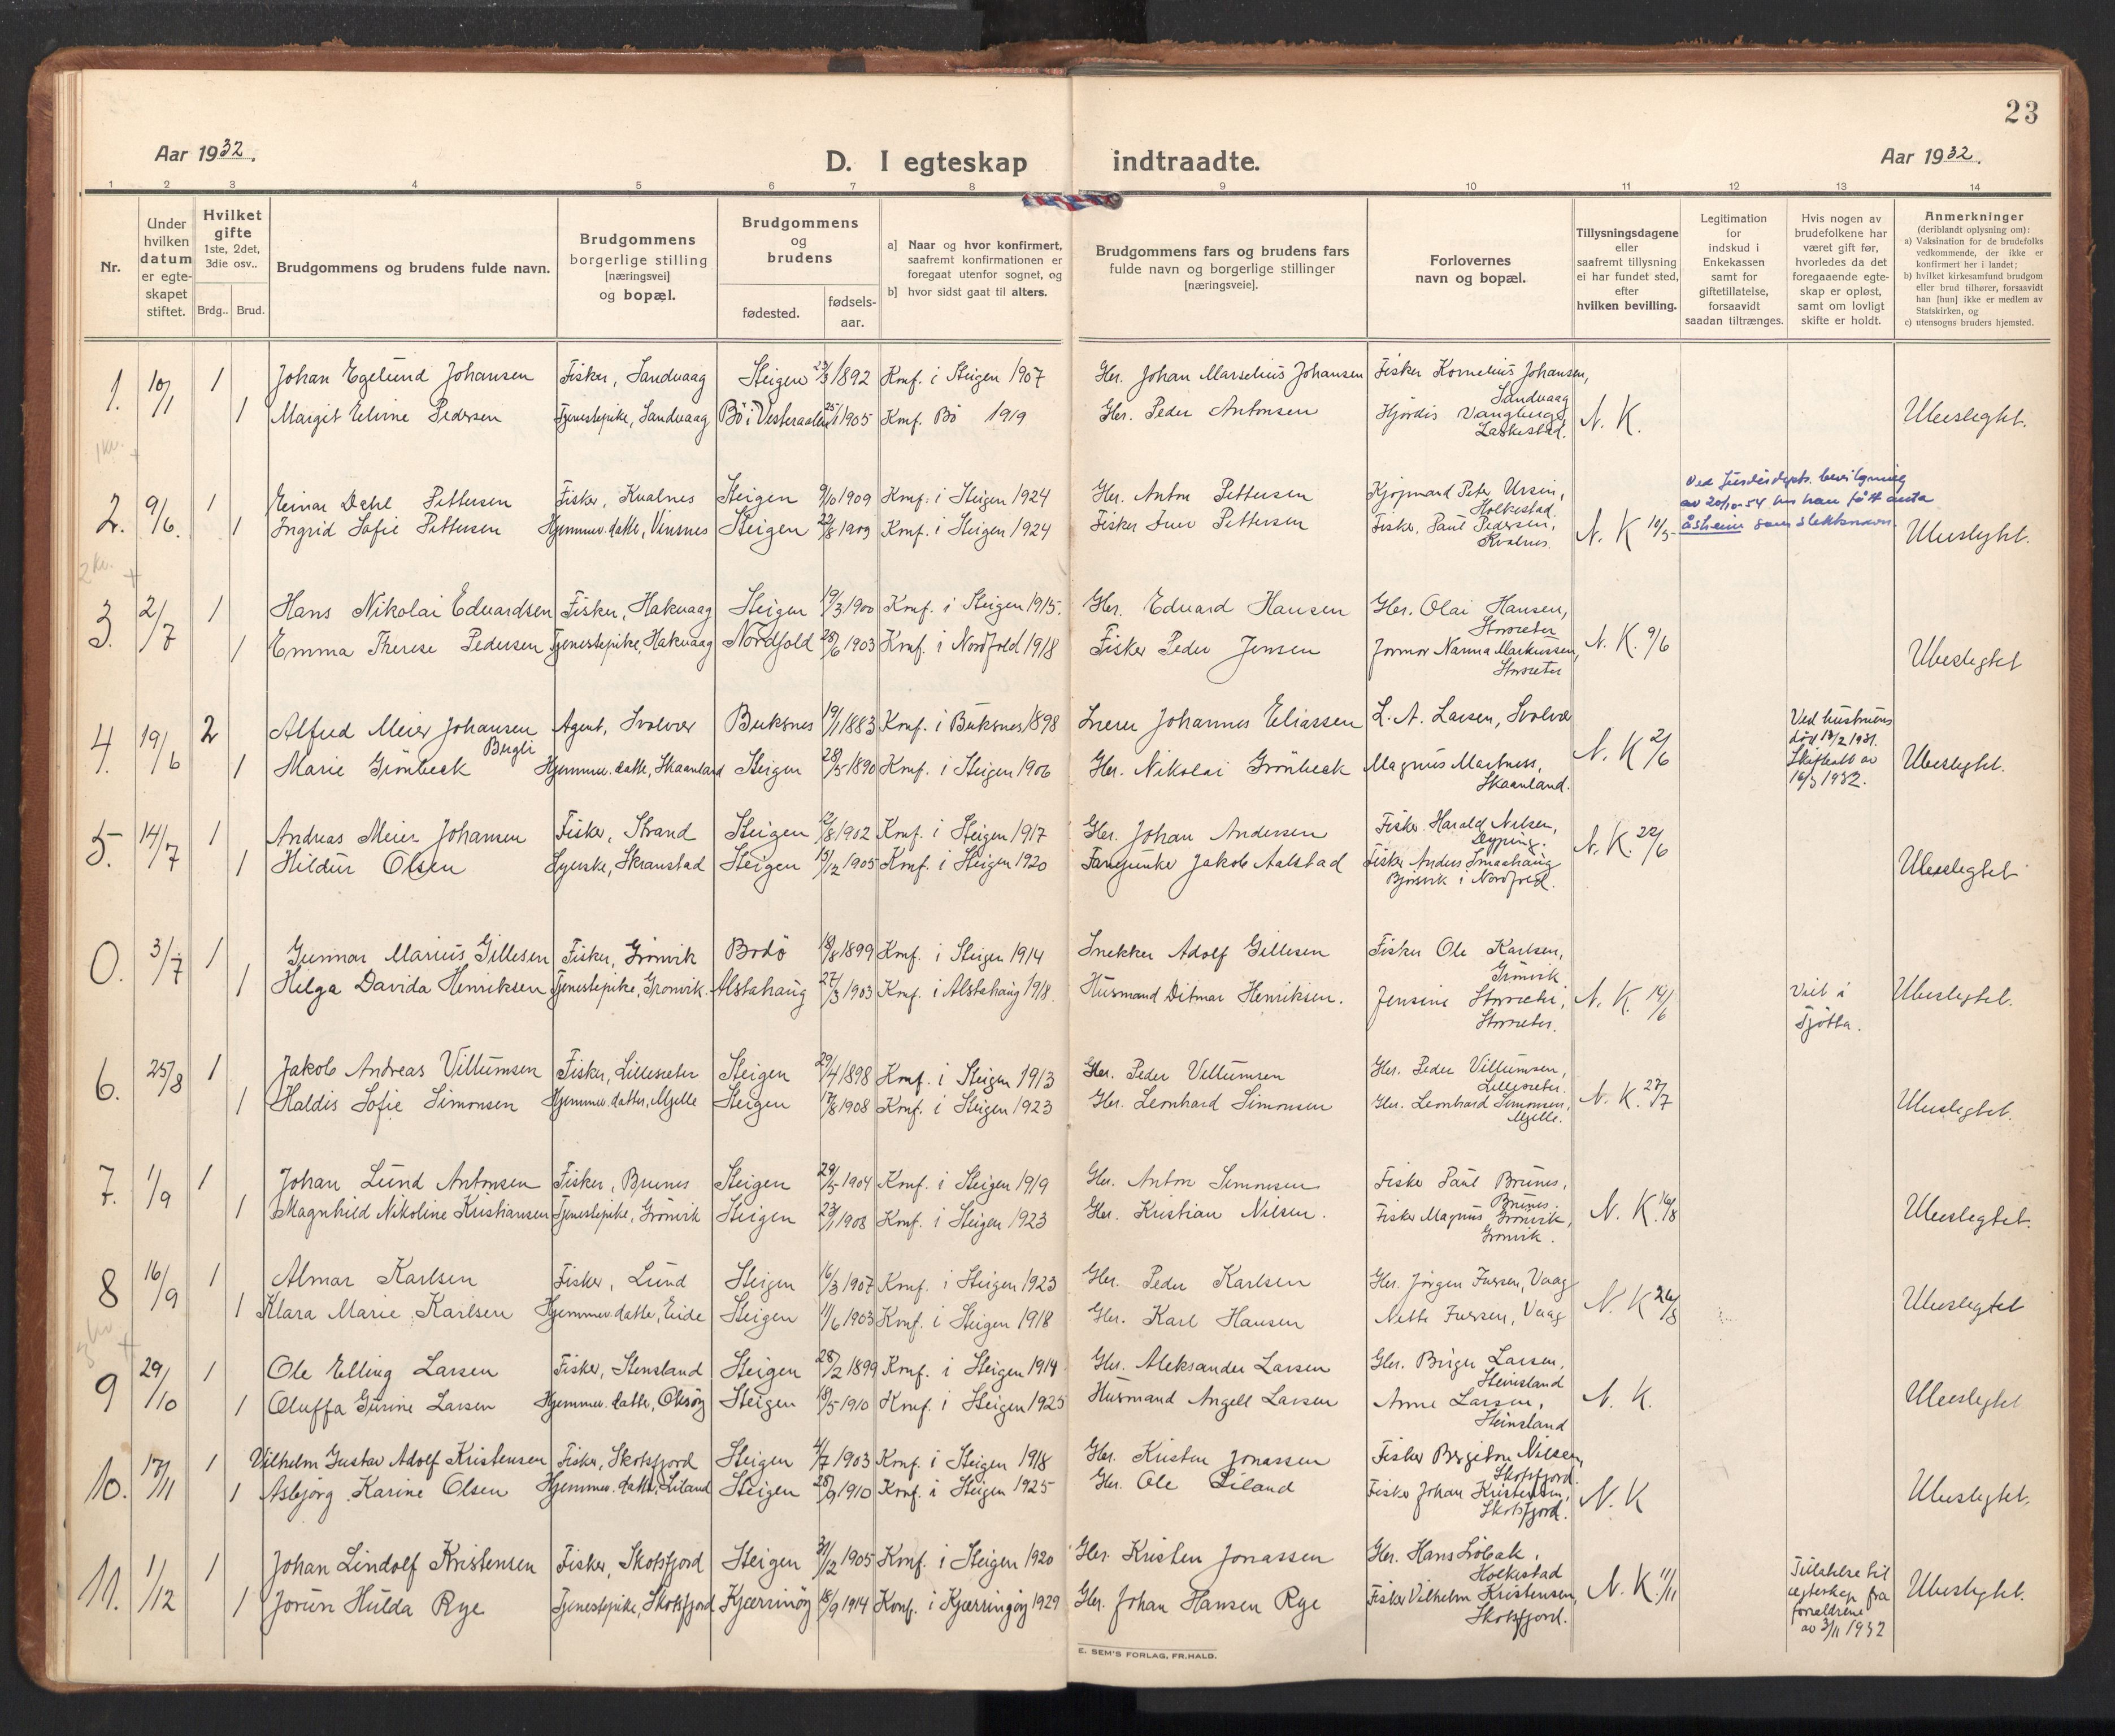 23
Aar 1932.
D. I egteskap indtraadte.
Aar 1932.
1 2 3 4 5 6 7 8 9 10 11 12 13 14
Nr.
Under hvilken datum er egte-skapet stiftet.
Hvilket gifte 1ste, 2det, 3die osv..
Brdg.. Brud.
Brudgommens og brudens fulde navn.
Brudgommens borgerlige stilling [næringsvei] og bopæl.
Brudgommens og brudens
fødested.
fødsels-aar.
a] Naar og hvor konfirmert, saafremt konfirmationen er foregaat utenfor sognet, og
b] hvor sidst gaat til alters.
Brudgommens fars og brudens fars fulde navn og borgerlige stillinger [næringsveie].
Forlovernes navn og bopæl.
Tillysningsdagene eller saafremt tillysning ei har fundet sted, efter hvilken bevilling.
Legitimation for indskud i Enkekassen samt for giftetillatelse, forsaavidt saadan tiltrænges.
Hvis nogen av brudefolkene har været gift før, hvorledes da det foregaaende egte-skap er opløst, samt om lovligt skifte er holdt.
Anmerkninger (deriblandt oplysning om):
a) Vaksination for de brudefolks vedkommende, der ikke er konfirmert her i landet;
b) hvilket kirkesamfund brudgom eller brud tilhører, forsaavidt han [hun] ikke er medlem av Statskirken, og
c) utensogns bruders hjemsted.
1. 10/1 1 Johan Egelund Johansen Fisker, Sandvaag Steigen 1892 Konf. i Steigen 1907 Gbr. Johan Marselius Johansen Fisker Kornelius Johansen, Sandvaag
1 Margit Elvine Pedersen Tjenestepike, Sandvaag Bö i Vesteraalen 25/1 1905 Konf. Bö 1919 Gbr. Peder Antonsen Hjördis Vangberg Laskestad. N. K. Ubeslegtet.
1 kv. +
2. 9/6. 1 Einar Dahl Pettersen Fisker, Kvalnes Steigen 9/10 1909 Konf. i Steigen 1924 Gbr. Anton Pettersen Kjöpmand Peter Ursin, Holkestad.
1 Ingrid Sofie Pettersen Hjemmev. datter, Vinsnes Steigen 22/8 1909 Konf. i Steigen 1924 Fisker Juul Pettersen Fisker, Paul Pedersen, Kvalnes. N. K 10/5 Ubeslegtet.
Ved Justisdepts. bevilgning
av 20/10-54 har han fått anta
Åsheim som slektsnavn.
2 kv. +
3. 2/7 1 Hans Nikolai Edvardsen Fisker, Hakvaag Steigen 19/3 1900 Konf. i Steigen 1915. Gbr. Edvard Hansen Gbr. Olai Hansen, Storsæter
1 Emma Therese Pedersen Tjenestepike, Hakvaag Nordfold 28/6 1903 Konf. i Nordfold 1918 Fisker Peder Jensen Jormor Nanna Markussen, Storsæter N. K. 9/6 Ubeslegtet
4. 19/6 2 Alfred Meier Johansen Bergli Agent, Svolvær Buksnes 19/1 1883 Konf. i Buksnes 1898 Snekker Johannes Eliassen L. A. Larsen, Svolvær
1 Marie Grönbeck Hjemmev. datter, Skaanland Steigen 28/5 1890 Konf. i Steigen 1906 Gbr. Nikolai Grönbeck Magnus Martness, Skaanland. N. K 2/6 Ubeslegtet.
Ved hustruens
död 13/2 1931.
Skifteatt av
16/3 1932.
5. 14/7 1 Andreas Meier Johansen Fisker, Strand Steigen 2/8 1902 Konf. i Steigen 1917 Gbr. Johan Andersen Fisker Harald Nilsen, Dyping.
1 Hildur Olsen Syerske, Skranstad Steigen 15/12 1905 Konf. i Steigen 1920 Jakob Aalstad Fisker Anders Smaahaug Björsvik i Nordfold. N. K. 22/6 Ubeslegtet
0. 3/7 1 Gunnar Marius Gillesen Fisker, Grönvik Bodö 18/8 1899 Konf. i Steigen 1914 Snekker Adolf Gillesen Fisker Ole Karlsen, Grönvik
1 Helga Davida Henriksen Tjenestepike, Grönvik. Alstahaug 27/3 1903 Konf. i Alstahaug 1918. Husmand Ditmar Henriksen. Jensine Storsæter, Storsæter. N. K. 14/6 Viet i Tjötta. Ubeslegtet.
6. 25/8 1 Jakob Andreas Villumsen Fisker, Lillesæter Steigen 29/4 1898 Konf. i Steigen 1913 Gbr. Peder Villumsen Gbr. Peder Villumsen, Lillesæter.
1 Haldis Sofie Simonsen Hjemmev. datter, Mjelle Steigen 17/8 1908 Konf. i Steigen 1923 Gbr. Leonhard Simonsen Gbr. Leonhard Simonsen, Mjelle. N. K. 27/7 Ubeslegtet.
7. 1/9 1 Johan Lund Antonsen Fisker, Brunes Steigen 29/5 1904 Konf. i Steigen 1919 Gbr. Anton Simonsen Fisker Paul Brunes, Brunes.
1 Magnhild Nikoline Kristiansen Tjenestepike, Grönvik Steigen 23/1 1908 Konf. i Steigen 1923 Gbr. Kristian Nilsen. Fisker Magnus Grönvik, Grönvik. N. K. 16/8 Ubeslegtet.
8 16/9 1 Almar Karlsen Fisker, Lund Steigen 16/3 1907 Konf. i Steigen 1923 Gbr. Peder Karlsen Gbr. Jörgen Iversen, Vaag
1 Klara Marie Karlsen Hjemmev. datter, Eide Steigen 11/6 1903 Konf. i Steigen 1918 Gbr. Karl Hansen Nette Iversen, Vaag N. K 26/8 Ubeslegtet
3 kv. +
9 29/10 1 Ole Elling Larsen Fisker, Stensland Steigen 28/2 1899 Konf. i Steigen 1914 Gbr. Aleksander Larsen Gbr. Birger Larsen, Steinsland
1 Oluffa Gurine Larsen Hjemmev. datter, Oksöy Steigen 18/5 1910 Konf. i Steigen 1925 Husmand Angell Larsen Anne Larsen, Steinsland N. K. Ubeslegtet
10. 17/11 1 Vilhelm Gustav Adolf Kristensen Fisker, Skotsfjord Steigen 4/7 1903 Konf. i Steigen 1918 Gbr. Kristen Jonassen Fisker Bergeton Nilsen, Skotsfjord.
1 Asbjörg Karine Olsen Hjemmev. datter, Liland Steigen 28/9 1910 Konf. i Steigen 1925 Gbr. Ole Liland Fisker Johan Kristensen, Skotsfjord. N. K Ubeslegtet.
11. 1/12 1 Johan Lindolf Kristensen Fisker, Skotsfjord Steigen 31/12 1905 Konf. i Steigen 1920 Gbr. Kristen Jonassen Gbr. Hans Löbak, Holkestad
1 Jorun Hulda Rye Tjenestepike, Skotsfjord Kjærringöy 18/9 1914 Konf. i Kjærringöy 1929 Gbr. Johan Hansen Rye Fisker Vilhelm Kristensen, Skotsfjord. N. K. 11/11 Ubeslegtet.
Tillatelse til
egteskap fra
forældrene
av 3/11 1932
E. SEM'S FORLAG, FR.HALD.